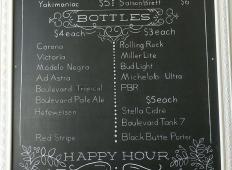 Yakimaniac $5 Saison Brett $6
BOTTLES
$4 each $3 each
Corona Rolling Rock
Victoria Miller Lite
Modelo Negra Bud Light
Ad Astra Michelob Ultra
Boulevard Tropical PBR
Boulevard Pale Ale $5 each
Hefeweizen Stella Cidre
Boulevard Tank 7
Red Stripe Black Butte Porter
HAPPY HOUR